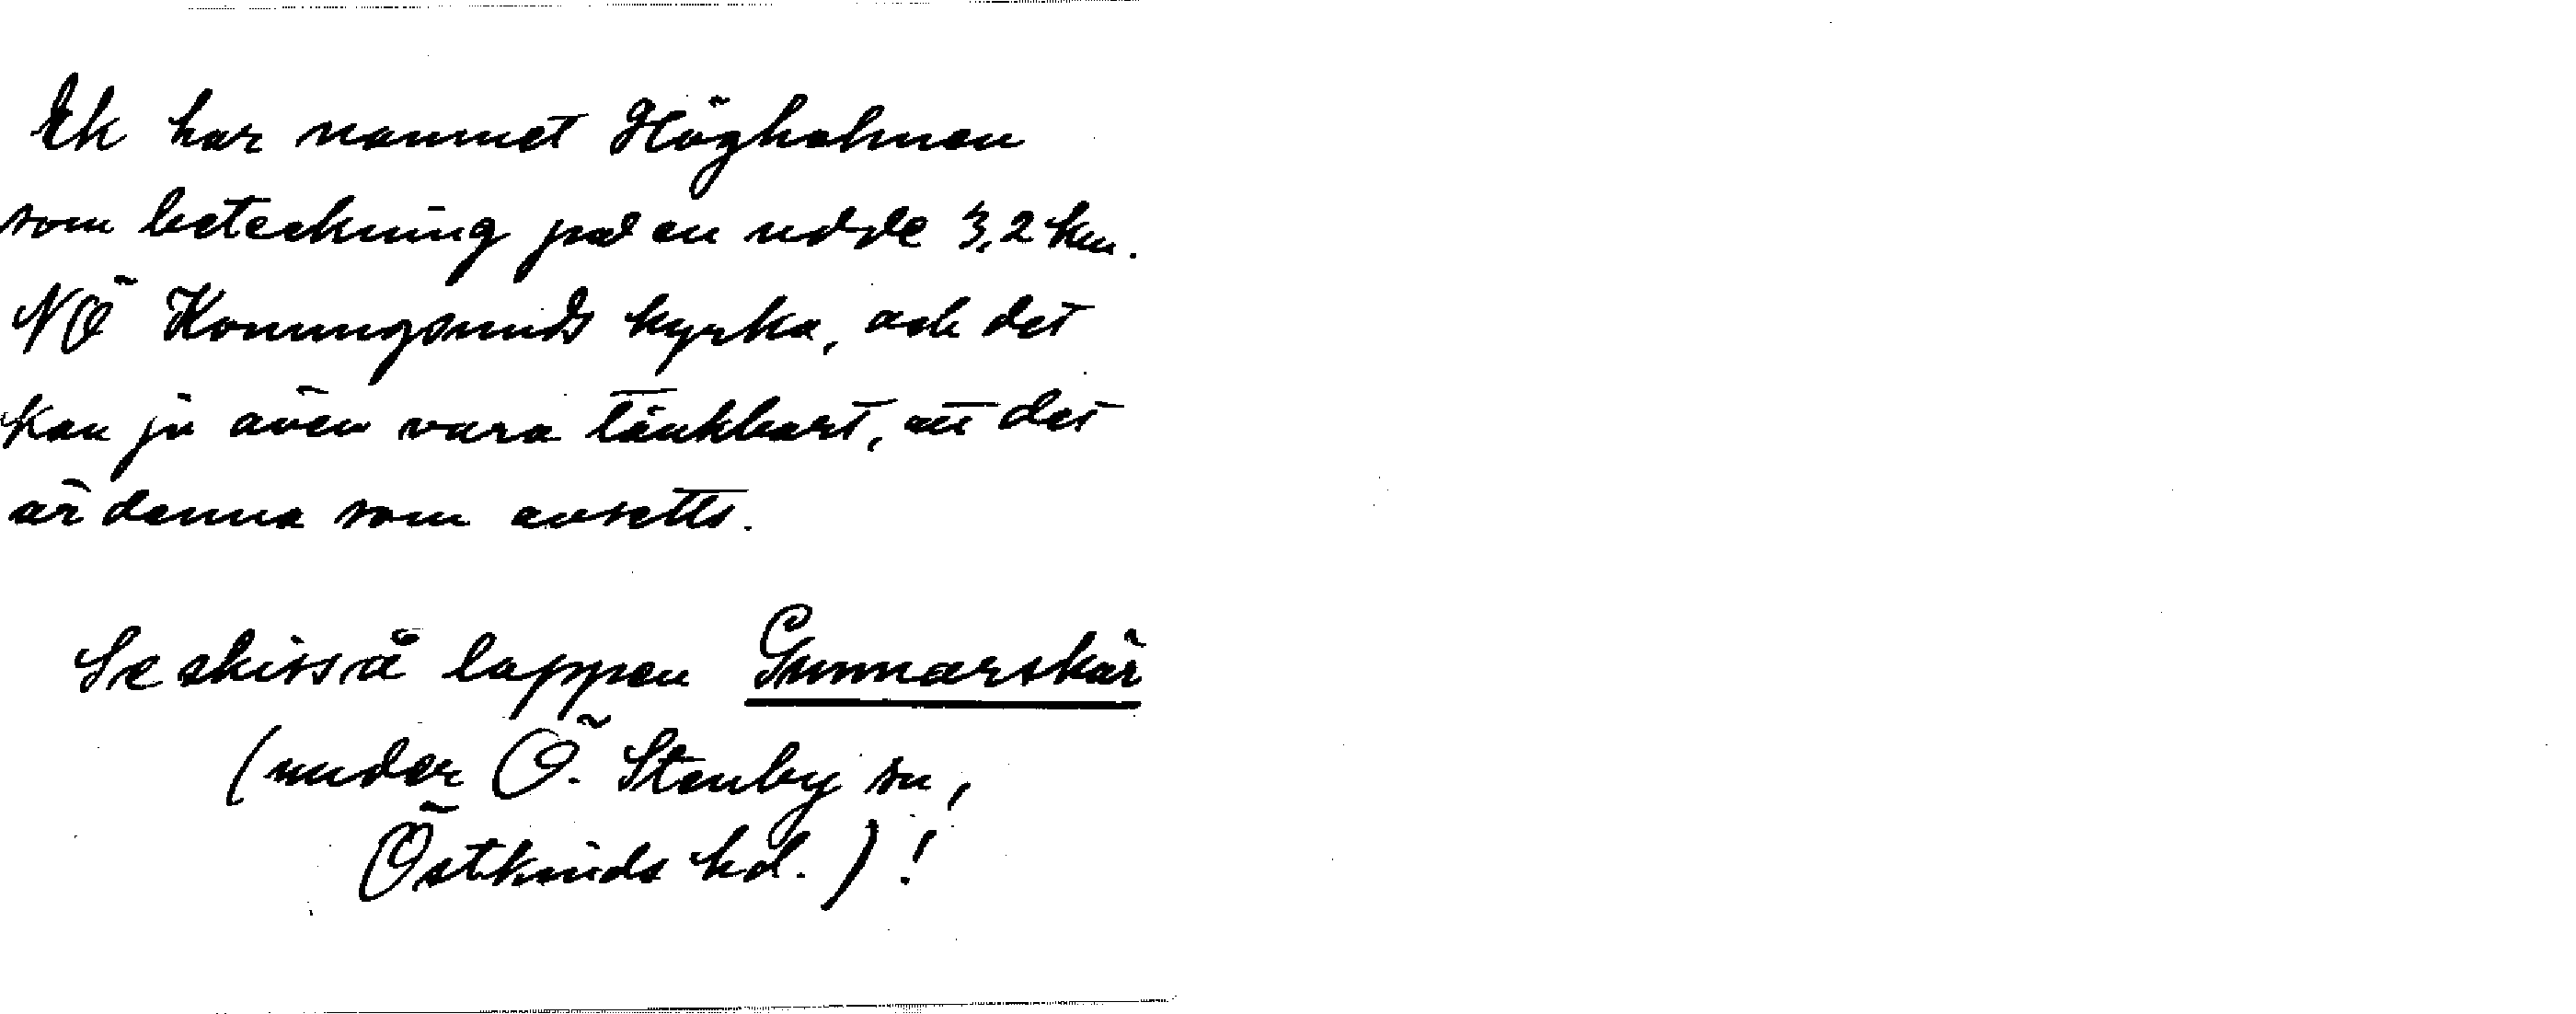 Ek har namnet Högholmen
som beteckning på en udde 3,2 km.
NÖ Konungsunds kyrka, och det
kan ju även vara tänkbart, att det
är denna som avsetts.
Se skiss å lappen Gunnarskär
(under Ö. Stenby sn,
Östkinds hd.)!